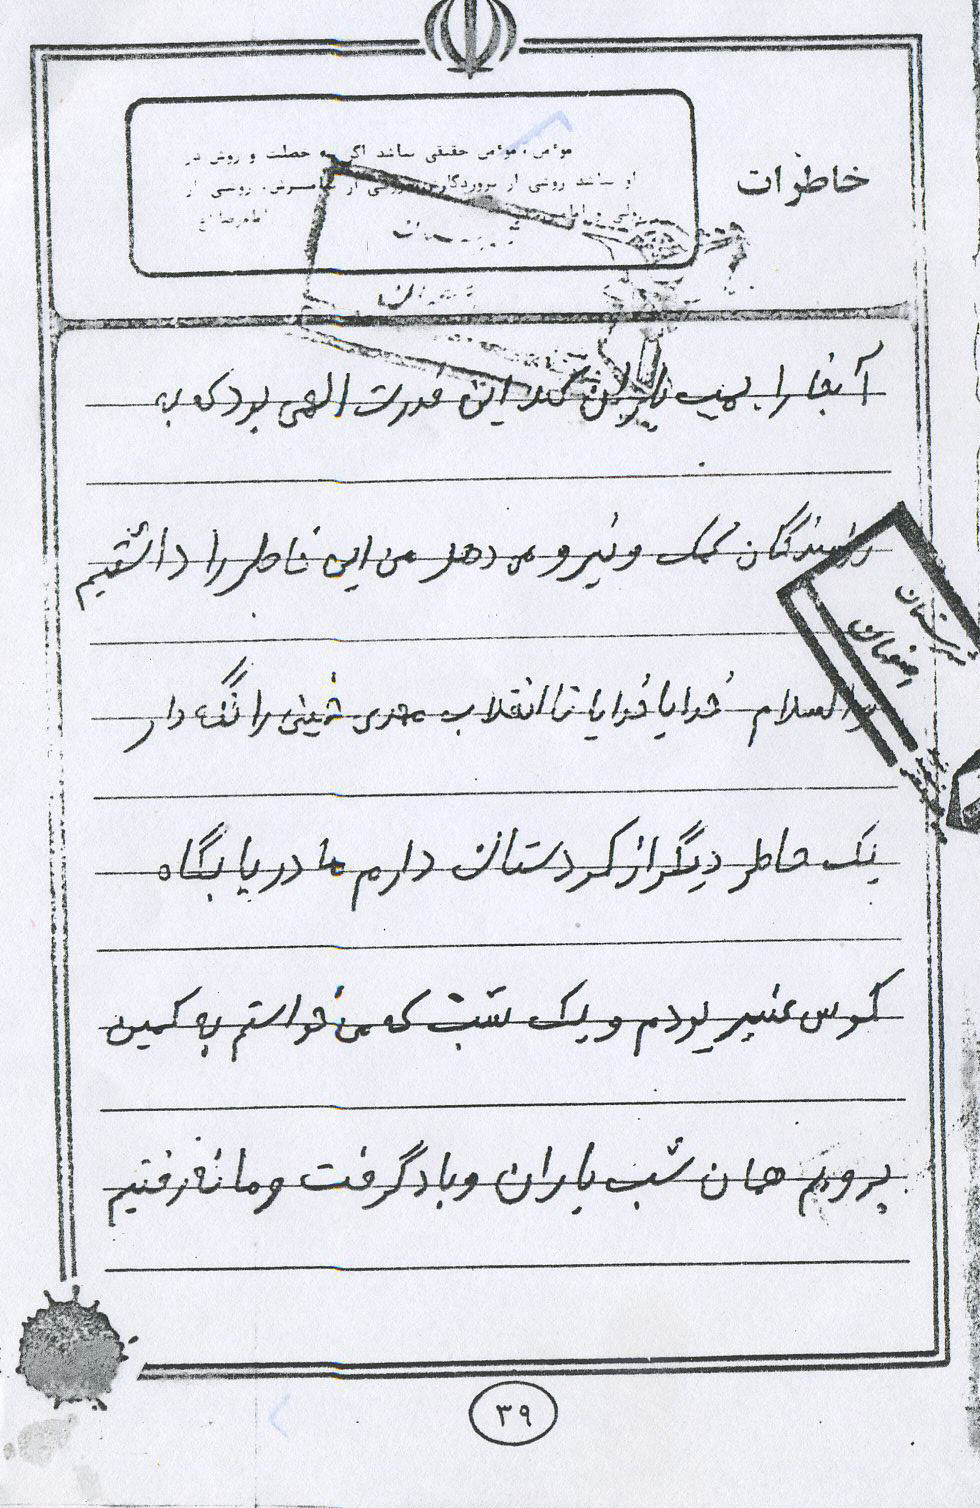 خاطرات
مؤمن، مؤمن حقیقی نباشد اگر سه خصلت و روش در
او نباشد روشی از پروردگارش، روشی از پیامبرش، روشی از
امام رضا (ع)
آنجا را بمب باران کند این قدرت الهی بود که به
رزمندگان کمک و نیرو می دهد من این خاطر را داشتیم
والسلام خدایا خدایا تا انقلاب مهدی خمینی را نگه دار
یک خاطر دیگر از کردستان دارم ما در پایگاه
کوس عنبر بودم و یک شب که می خواستم به کمین
برویم همان شب باران و باد گرفت و ما نه رفتیم
۳۹